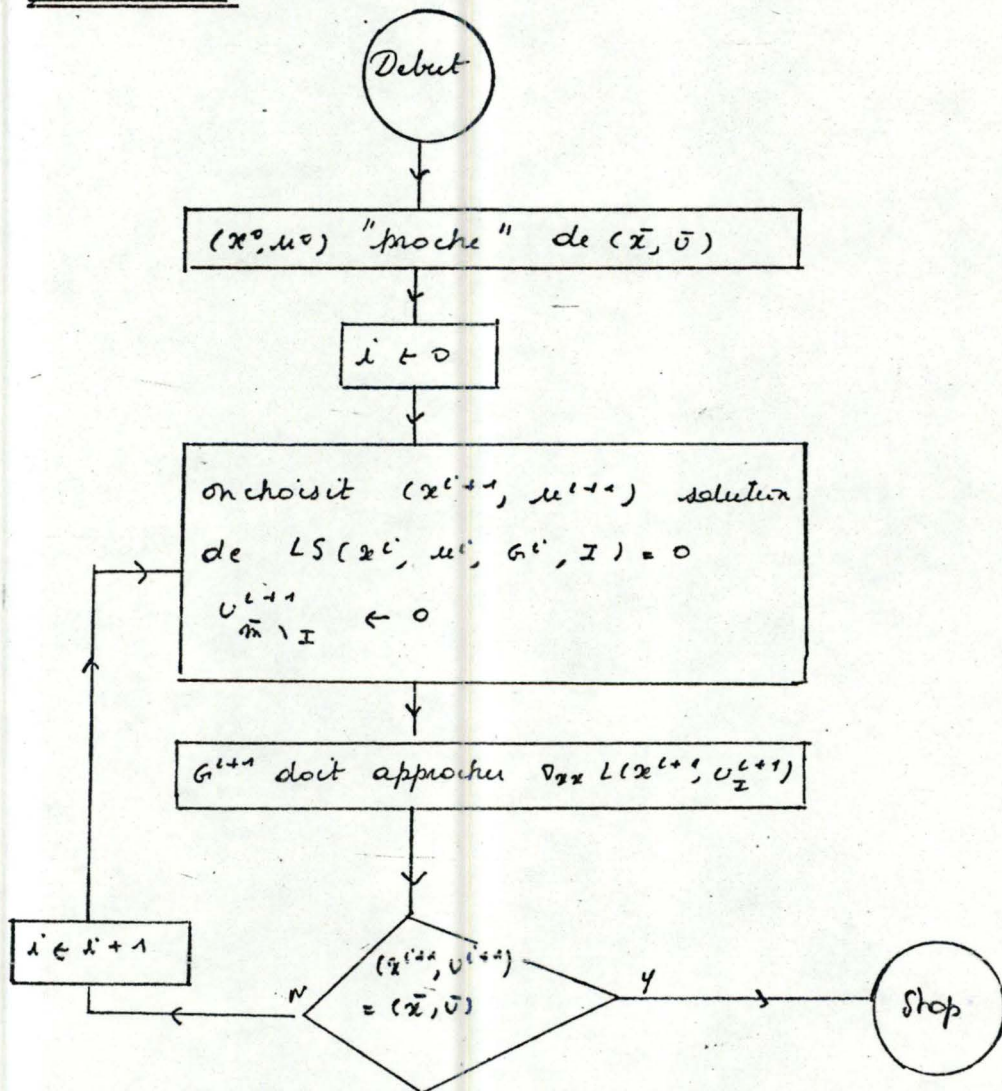 Debut
(x⁰, u⁰) "proche" de (x̄, ū)
i ← 0
on choisit (xⁱ⁺¹, uⁱ⁺¹) solution
de LS(xⁱ, uⁱ, Gⁱ, I) = 0
υⁱ⁺¹_{m̄ \ I} ← 0
Gⁱ⁺¹ doit approcher ∇ₓₓ L(xⁱ⁺¹, υ_Iⁱ⁺¹)
i ← i + 1
N
(xⁱ⁺¹, υⁱ⁺¹)
= (x̄, ῡ)
y
Stop